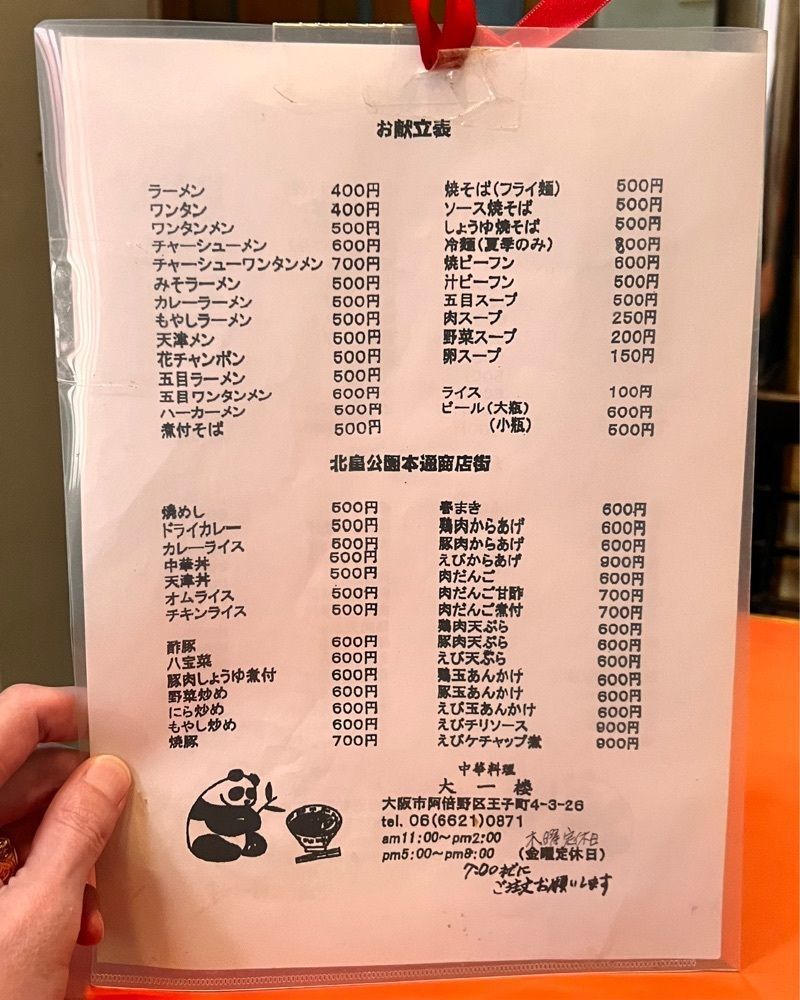 お献立表
ラーメン 400円
ワンタン 400円
ワンタンメン 500円
チャーシューメン 600円
チャーシューワンタンメン 700円
みそラーメン 500円
カレーラーメン 500円
もやしラーメン 500円
天津メン 500円
花チャンポン 500円
五目ラーメン 500円
五目ワンタンメン 600円
ハーカーメン 500円
煮付そば 500円
焼そば(フライ麺) 500円
ソース焼そば 500円
しょうゆ焼そば 500円
冷麺(夏季のみ) 800円
焼ビーフン 600円
汁ビーフン 500円
五目スープ 500円
肉スープ 250円
野菜スープ 200円
卵スープ 150円
ライス 100円
ビール(大瓶) 600円
(小瓶) 500円
北畠公園本通商店街
焼めし 500円
ドライカレー 500円
カレーライス 500円
中華丼 500円
天津丼 500円
オムライス 500円
チキンライス 500円
酢豚 600円
八宝菜 600円
豚肉しょうゆ煮付 600円
野菜炒め 600円
にら炒め 600円
もやし炒め 600円
焼豚 700円
春まき 600円
鶏肉からあげ 600円
豚肉からあげ 600円
えびからあげ 900円
肉だんご 600円
肉だんご甘酢 700円
肉だんご煮付 700円
鶏肉天ぷら 600円
豚肉天ぷら 600円
えび天ぷら 600円
鶏玉あんかけ 600円
豚玉あんかけ 600円
えび玉あんかけ 600円
えびチリソース 900円
えびケチャップ煮 900円
中華料理
大一楼
大阪市阿倍野区王子町4-3-26
tel. 06(6621)0871
am11:00～pm2:00 木曜定休日
pm5:00～pm8:00 (金曜定休日)
7:00までに
ご注文お願いします